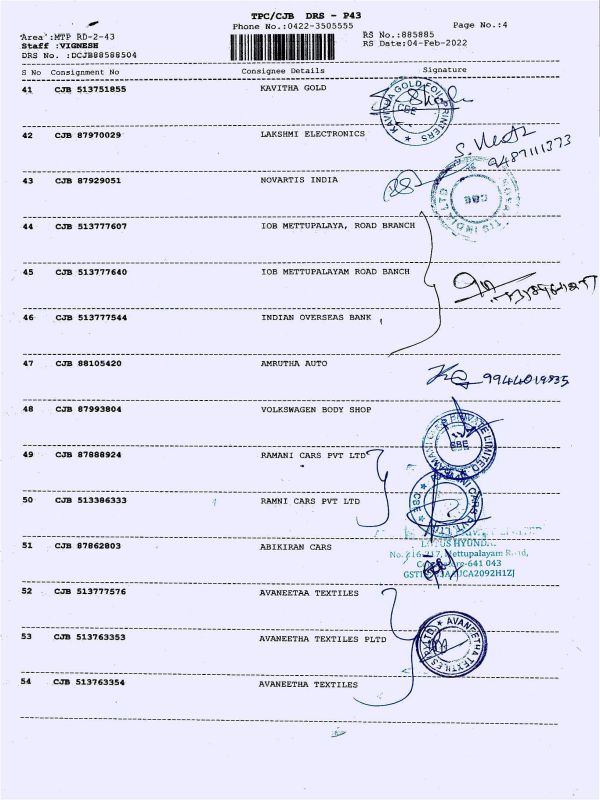 TPC/CJB DRS - P43
Phone No.:0422-3505555
Page No.:4
Area :MTP RD-2-43
RS No.:885885
Staff :VIGNESH
RS Date:04-Feb-2022
DRS No. :DCJB88588504
S No Consignment No Consignee Details Signature
41 CJB 513751855 KAVITHA GOLD
KAVITHA GOLD FOIL PRINTERS
CBE
42 CJB 87970029 LAKSHMI ELECTRONICS
9487111373
43 CJB 87929051 NOVARTIS INDIA
CBE
44 CJB 513777607 IOB METTUPALAYA, ROAD BRANCH
45 CJB 513777640 IOB METTUPALAYAM ROAD BANCH
46 CJB 513777544 INDIAN OVERSEAS BANK
47 CJB 88105420 AMRUTHA AUTO
9944019835
48 CJB 87993804 VOLKSWAGEN BODY SHOP
RAMANI CARS PRIVATE LIMITED
CBE
49 CJB 87888924 RAMANI CARS PVT LTD
50 CJB 513386333 RAMNI CARS PVT LTD
CBE
51 CJB 87862803 ABIKIRAN CARS
Mettupalayam Road,
641 043
52 CJB 513777576 AVANEETAA TEXTILES
53 CJB 513763353 AVANEETHA TEXTILES PLTD
AVANEETHA TEXTILES (P) LTD
54 CJB 513763354 AVANEETHA TEXTILES